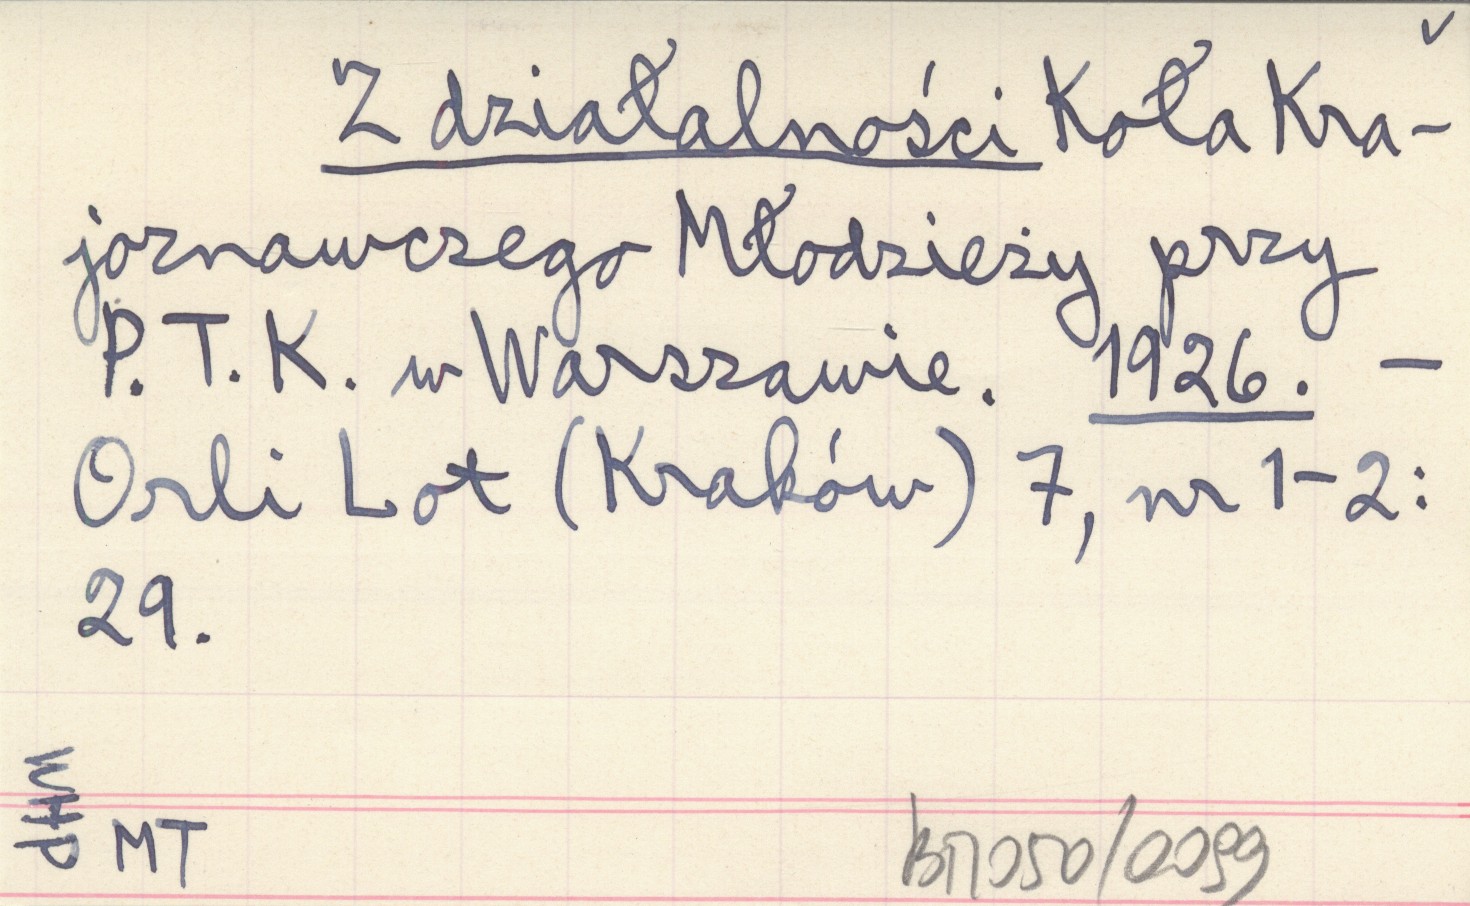 Z działalności Koła Kra-
joznawczego Młodzieży przy
P.T.K. w Warszawie. 1926. —
Orli Lot (Kraków) 7, nr 1-2:
29.
MT